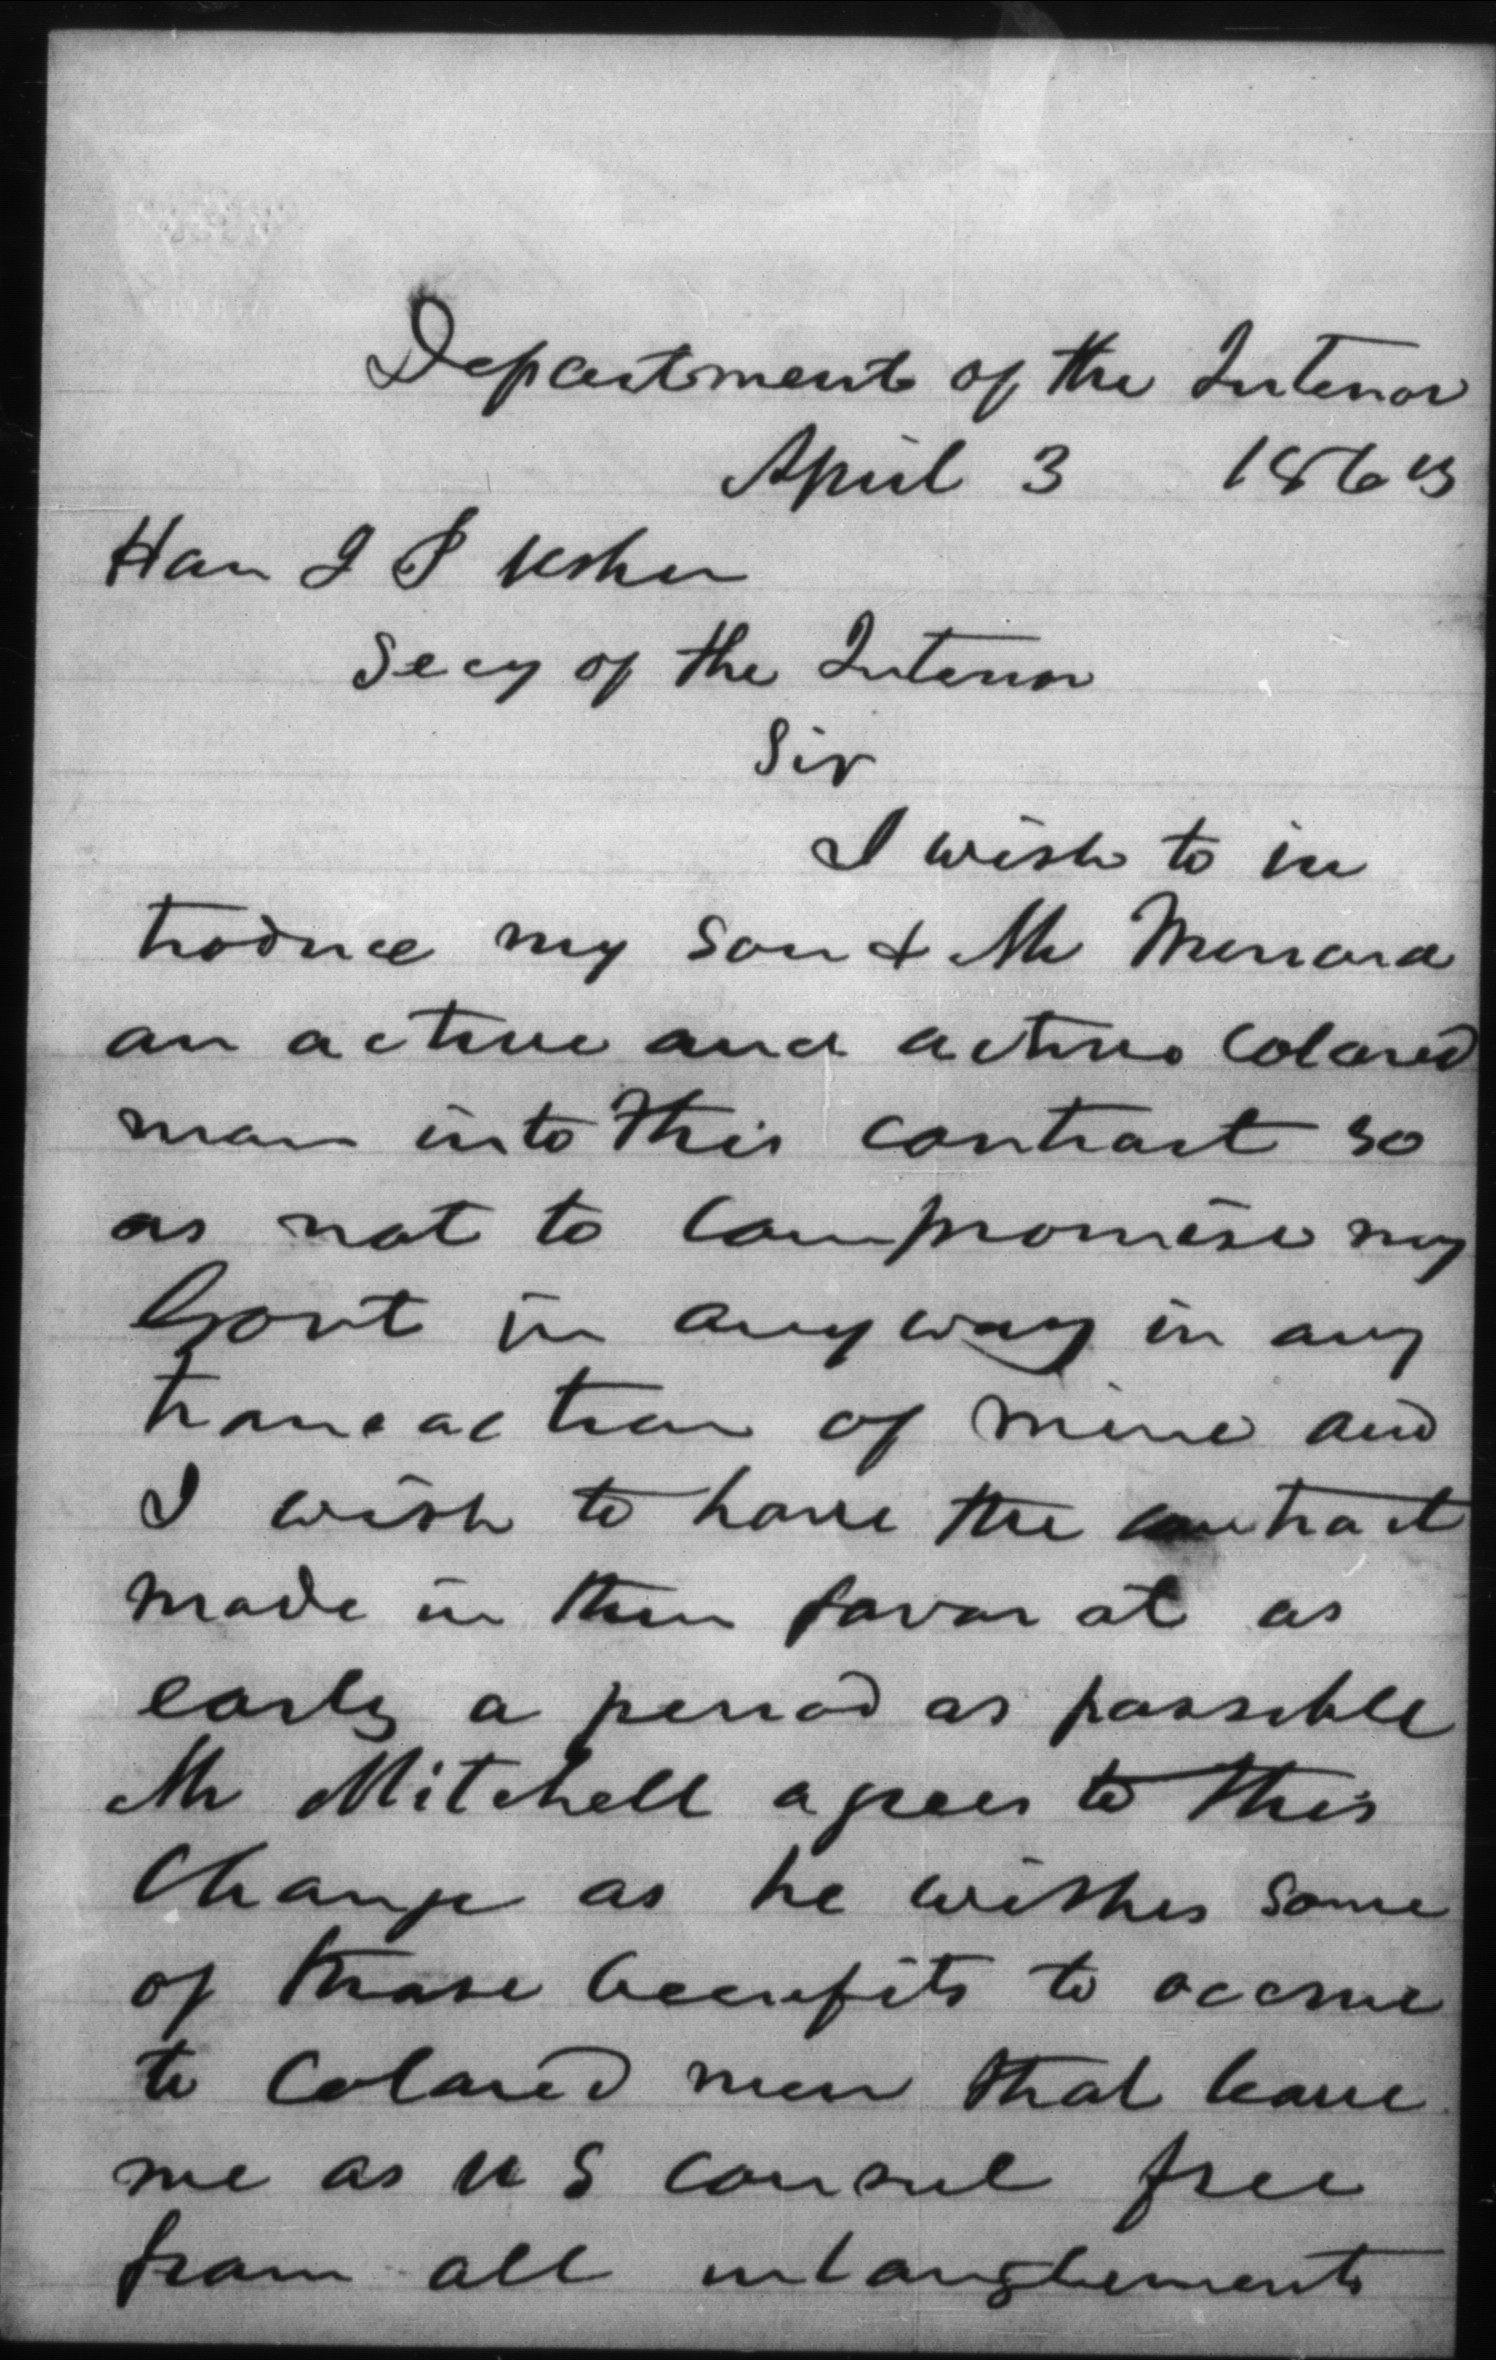 Department of the Interior
April 3 1863
Hon J P Usher
Secy of the Interior
Sir
I wish to in
troduce my son & Mr Mennard
an active and active Colored
man into this contract so
as not to compromise my
Govt in anyway in any
transaction of mine and
I wish to have the contract
made in their favor at as
early a period as possible
Mr Mitchell agrees to this
Change as he wishes some
of those benefits to accrue
to Colored men that leave
me as U S consul free
from all intanglements